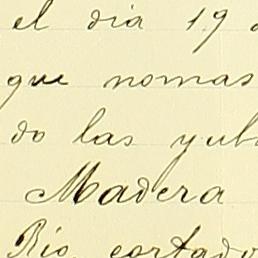 el dia 19
que nomas
do las yub
Madera
Rio cortado